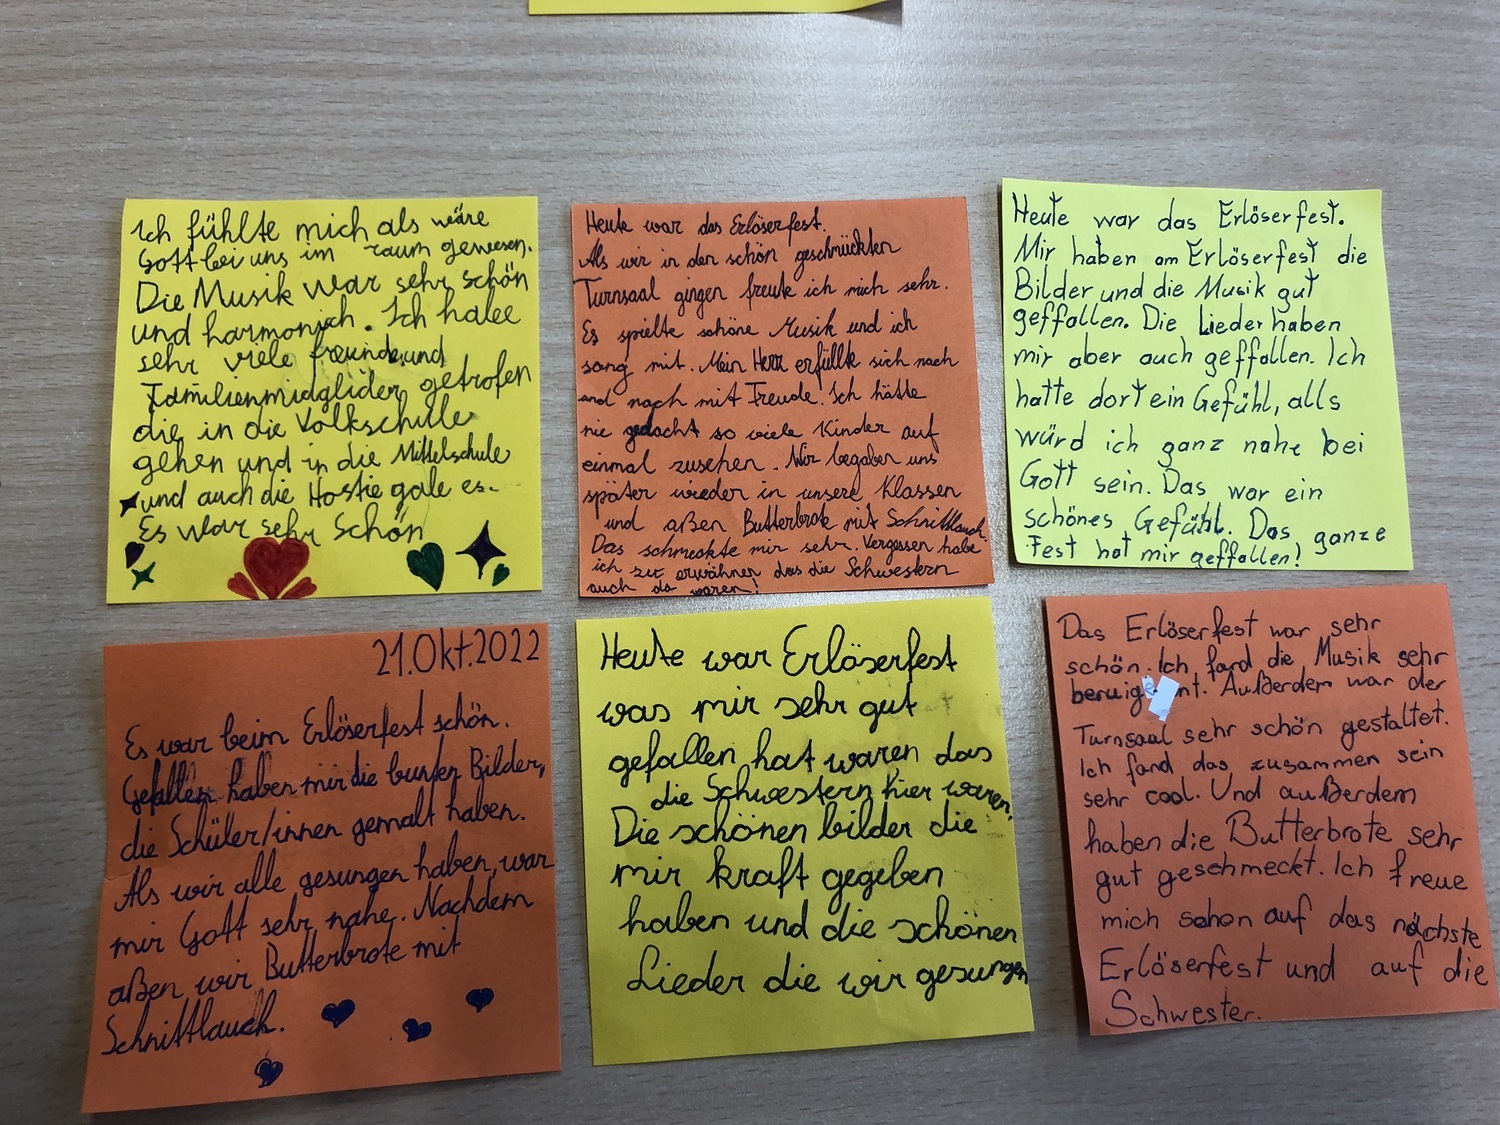 Ich fühlte mich als wäre
Gott bei uns im raum gewesen.
Die Musik war sehr schön
und harmonisch. Ich habe
sehr viele freunde und
Familienmidglider getrofen
die in die Volkschule
gehen und in die Mittelschule
und auch die Hostie gabe es.
Es war sehr schön
Heute war das Erlöserfest.
Als wir in den schön geschmückten
Turnsaal gingen freute ich mich sehr.
Es spielte schöne Musik und ich
sang mit. Mein Herz erfüllte sich nach
und nach mit Freude. Ich hätte
nie gedacht so viele Kinder auf
einmal zusehen. Wir begaben uns
später wieder in unsere Klassen
und aßen Butterbrote mit Schnittlauch.
Das schmeckte mir sehr. Vergessen habe
ich zu erwähnen das die Schwestern
auch da waren!
Heute war das Erlöserfest.
Mir haben am Erlöserfest die
Bilder und die Musik gut
geffallen. Die Lieder haben
mir aber auch geffallen. Ich
hatte dort ein Gefühl, alls
würd ich ganz nahe bei
Gott sein. Das war ein
schönes Gefühl. Das ganze
Fest hat mir geffallen!
21.Okt.2022
Es war beim Erlöserfest schön.
Gefallen haben mir die bunten Bilder,
die Schüller/innen gemalt haben.
Als wir alle gesungen haben, war
mir Gott sehr nahe. Nachdem
aßen wir Butterbrote mit
Schnittlauch.
Heute war Erlöserfest
was mir sehr gut
gefallen hat waren das
die Schwestern hier waren.
Die schönen bilder die
mir kraft gegeben
haben und die schönen
Lieder die wir gesungen
Das Erlöserfest war sehr
schön. Ich fand die Musik sehr
beruigent. Außerdem war der
Turnsaal sehr schön gestaltet.
Ich fand das zusammen sein
sehr cool. Und außerdem
haben die Butterbrote sehr
gut geschmeckt. Ich freue
mich schon auf das nächste
Erlöserfest und auf die
Schwester.